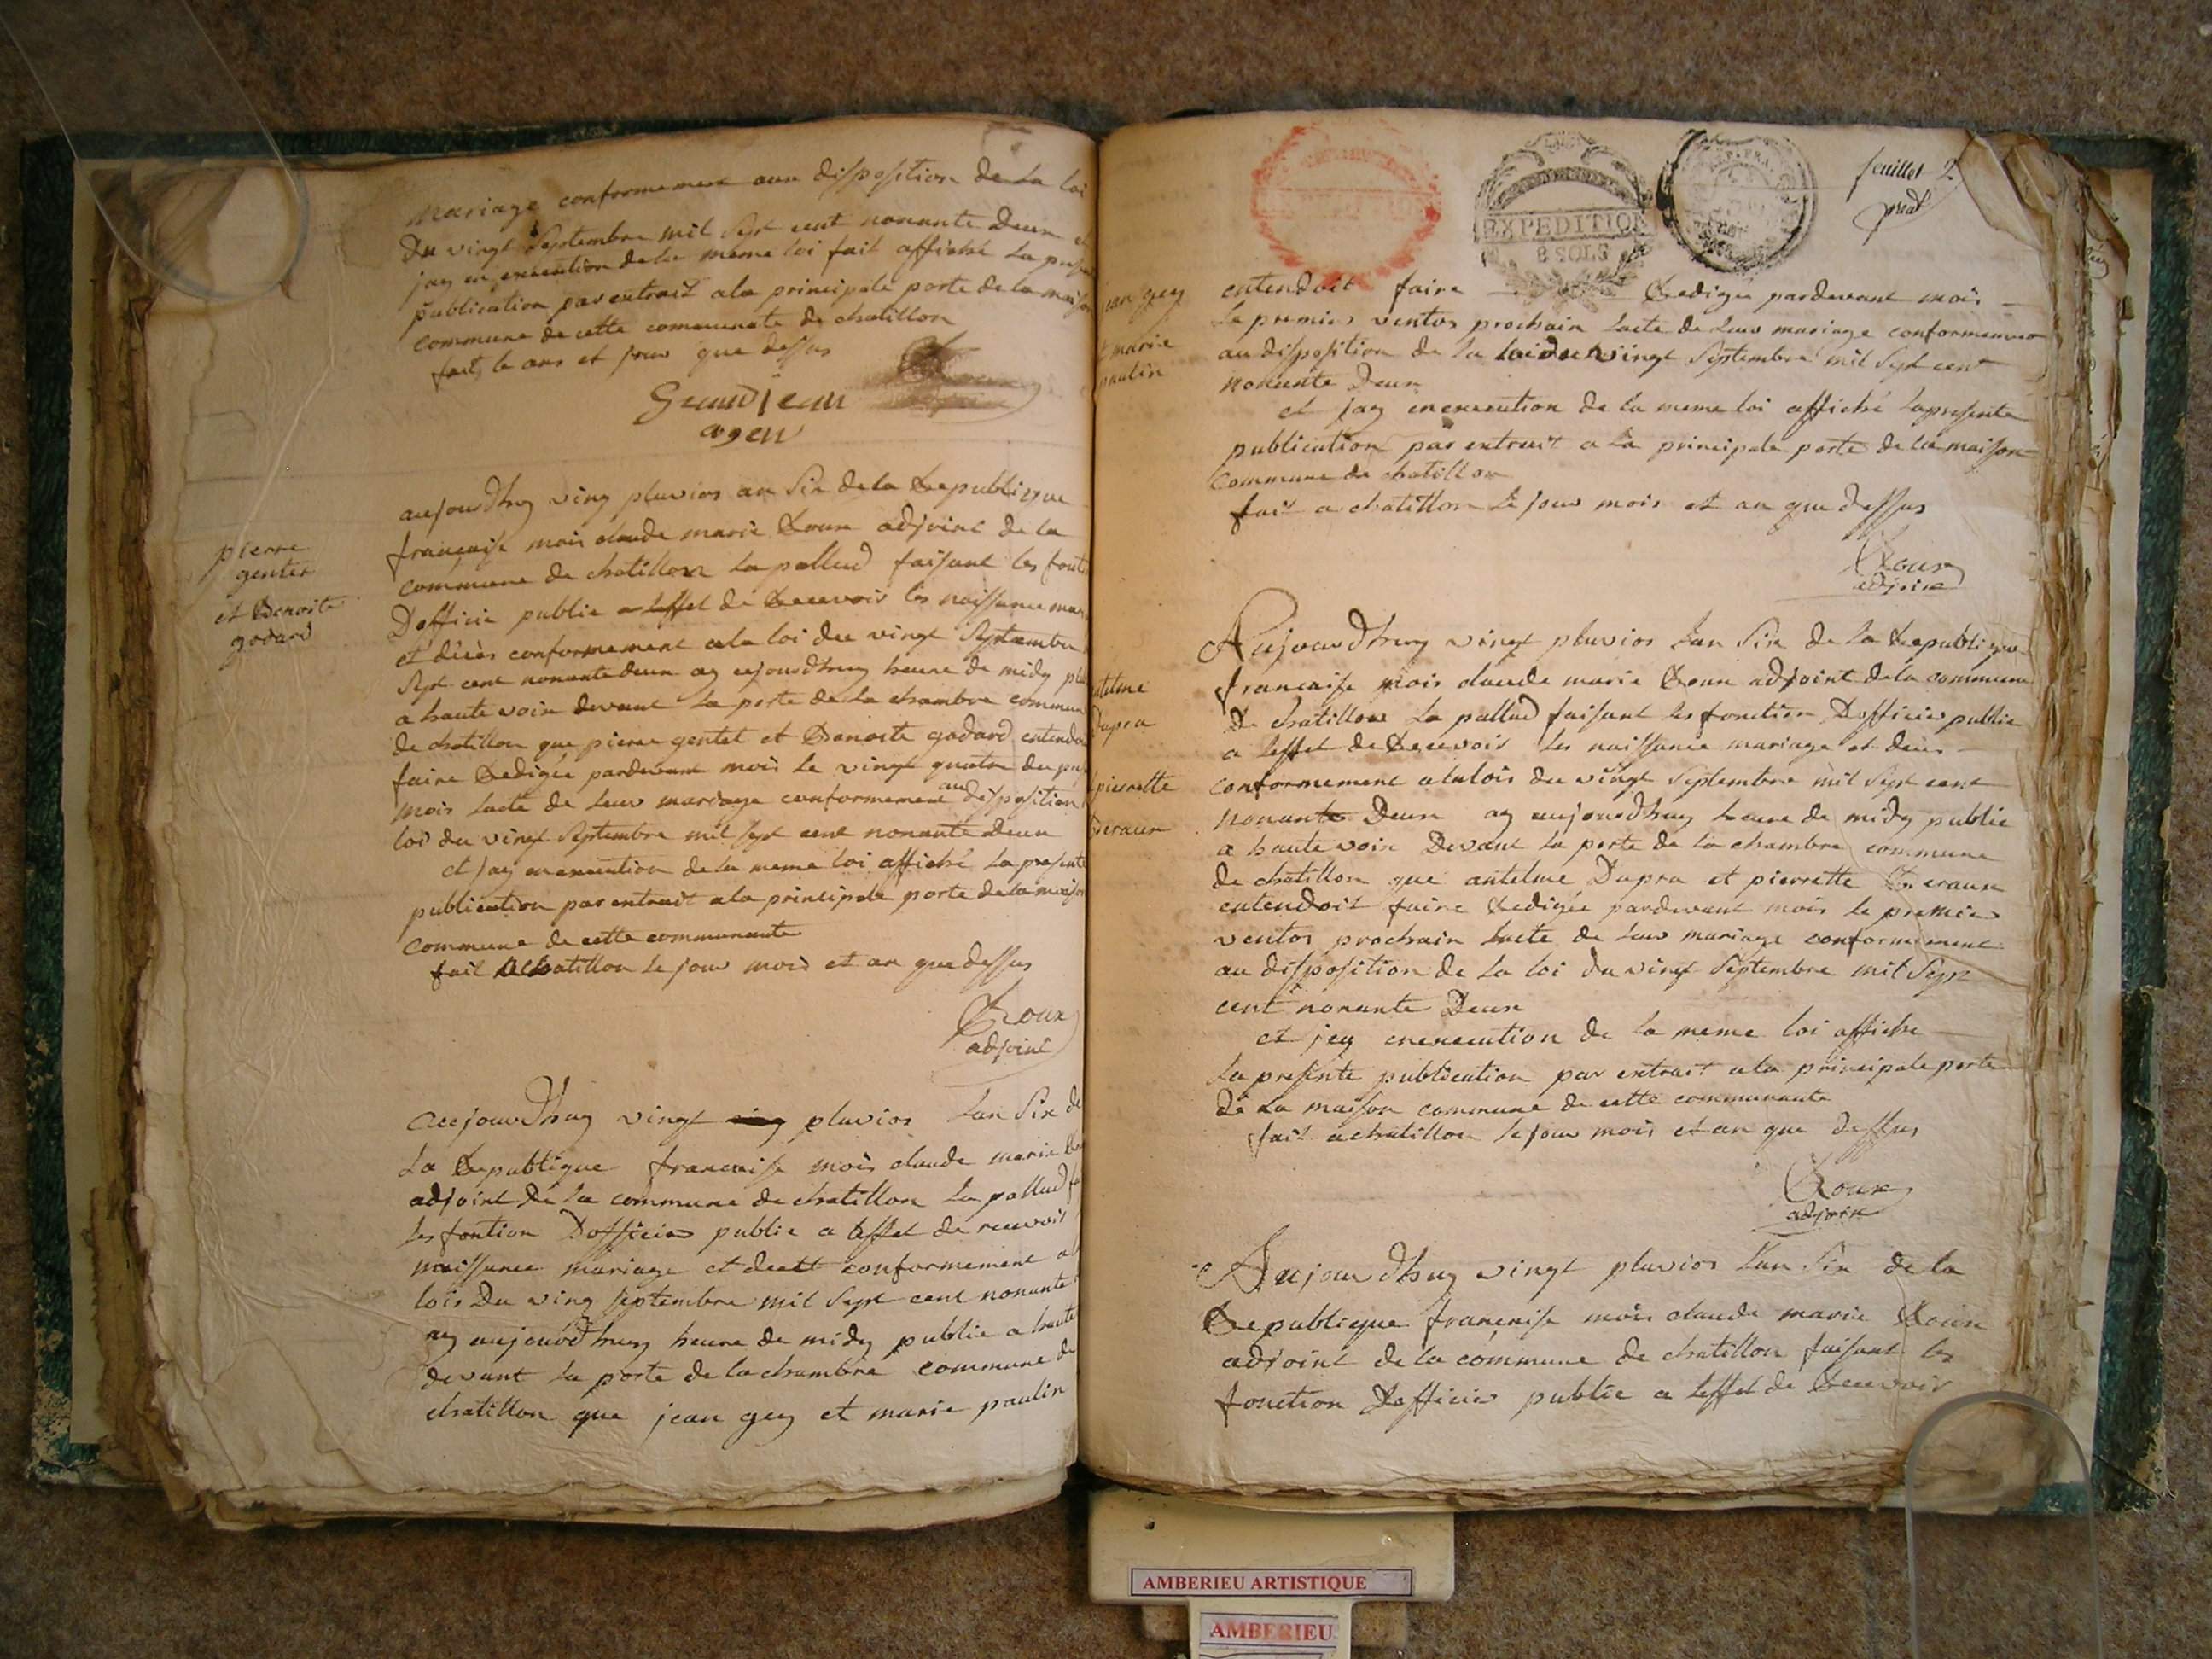 mariage conformement aux disposition de la loi
du vingt Septembre mil Sept cent nonante Deux et
jay en execution de la meme loi fait affiché La
publication par extrait ala principale porte de la maison
commune de cette communate de chatillon
fait le ans et jour que dessus
Grandjean
agen
pierre
gentet
et Benoite
godard
aujourdhuy ving pluvios an Six de la Republique
francaise mois claude marie Roux adjoint de la
commune de chatillon La pallud faisant les
Dofficie public a leffet de Recevoir les naissance
et décès conformement ala loi du vingt Septembre
Sept cent nonante deux ay aujourdhuy heure de midy
a haute voix devant La porte de la chambre commune
de chatillon que pierre gentet et Benoite godard
faire Redigée pardevant mois le vingt quatre du
mois Lacte de Leur mariage conformement au disposition
loi du vingt Septembre mil Sept cent nonante deux
et jay en execution de la meme loi affiché La presente
publication par extrait ala principale porte de la maison
commune de cette communaute
fait a chatillon le jour mois et an que dessus
Roux
adjoint
aujourdhuy vingt pluvios Lan Six de
La Republique francaise mois claude marie
adjoint de La commune de chatillon La pallud
les fontion Dofficier public a leffet de recevoir
naissance mariage et decett conformement a
lois Du ving septembre mil Sept cent nonante
ay aujourdhuy heure de midy publie a haute
devant La porte de la chambre commune de
chatillon que jean gey et marie paulin
EXPEDITION
8 SOLS
REP. FRA.
feuillet 2
jean gey
et marie
paulin
entendoit faire Redigée pardevant mois
Le premier ventos prochain Lacte de Leur mariage conformement
au disposition de la loi du vingt Septembre mil Sept cent
nonante Deux
et jay en execution de la meme loi affiché La presente
publication par extrait a La principale porte de la maison
commune de chatillon
fait a chatillon le jour mois et an que dessus
Roux
adjoint
antelme
Dupra
pierrette
Aujourdhuy vingt pluvios Lan Six de la Republique
francaise mois claude marie Roux adjoint de la commune
De chatillon La pallud faisant les fonction Dofficier public
a leffet de Recevoir les naissance mariage et deces
conformement a la lois du vingt Septembre mil Sept cent
nonante Deux ay aujourdhuy heure de midy publie
a haute voix Devant La porte de la chambre commune
de chatillon que antelme Dupra et pierrette
entendoit faire Redigée pardevant mois le premier
ventos prochain Lacte de Leur mariage conformement
au disposition de La loi du vingt Septembre mil Sept
cent nonante Deux
et jey en execution de la meme loi affiche
La presente publication par extrait ala principale porte
de La maison commune de cette communaute
fait a chatillon le jour mois et an que dessus
Roux
adjoint
Aujourdhuy vingt pluvios Lan Six de la
Republique francaise mois claude marie Roux
adjoint de la commune de chatillon faisant les
fonction Dofficier public a leffet de Recevoir
AMBERIEU ARTISTIQUE
AMBERIEU